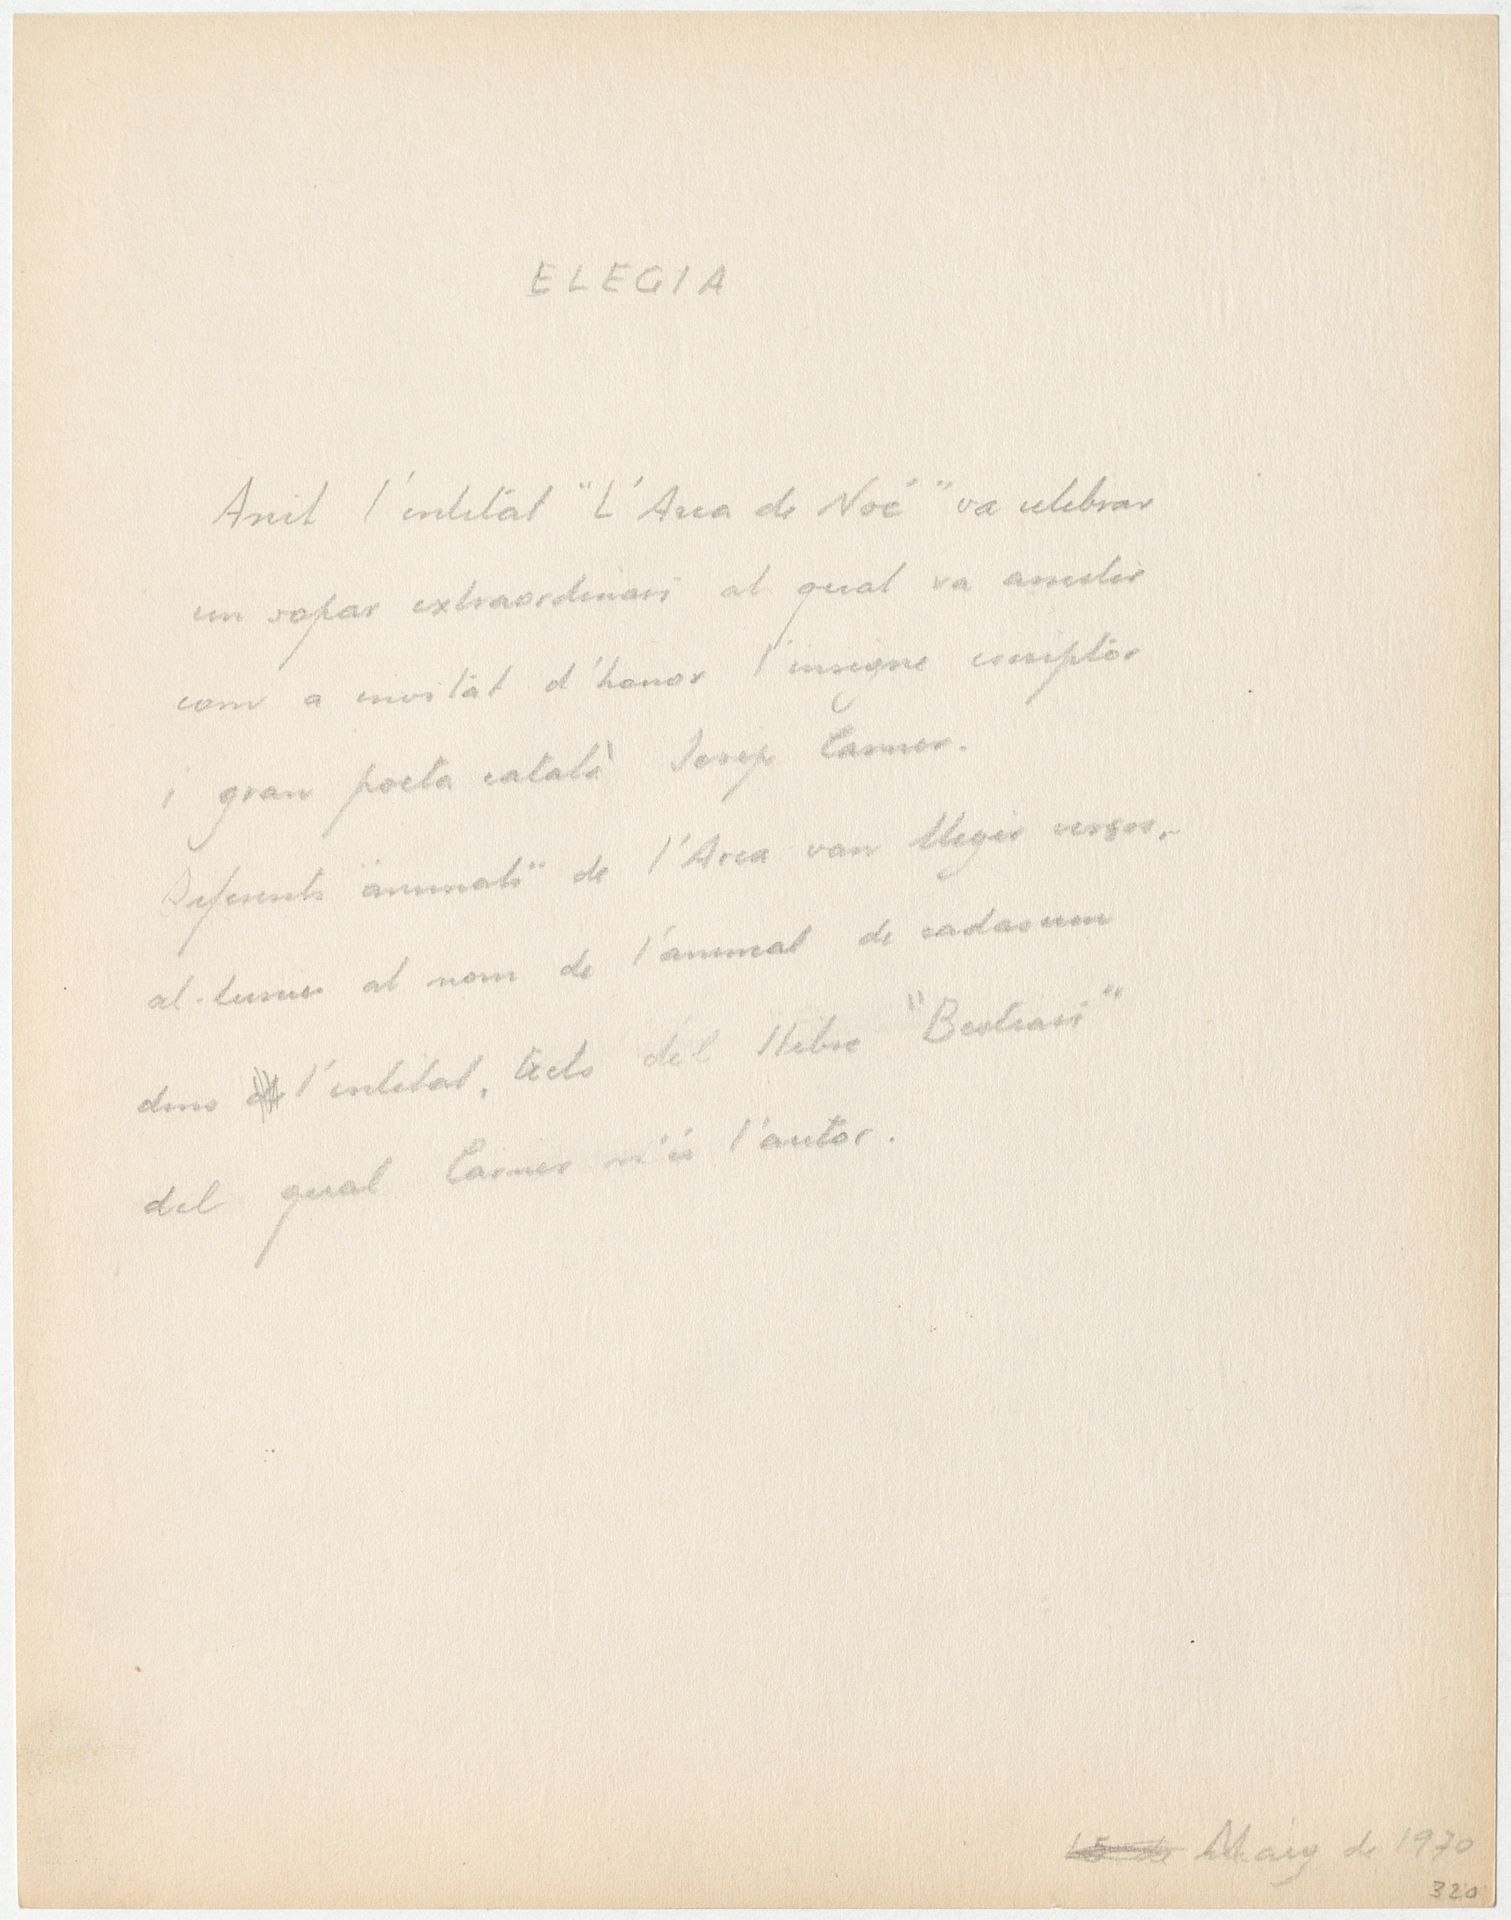 ELEGIA
Anit l'entitat "L'Arca de Noé" va celebrar
un sopar extraordinari al qual va assistir
com a invitat d'honor l'insigne escriptor
i gran poeta català Josep Carner.
Diferents "animals" de l'Arca van llegir versos,
al·lusius al nom de l'animal de cadascun
dins de l'entitat, trets del llibre "Bestiari"
del qual Carner n'és l'autor.
15 de Maig de 1970
320